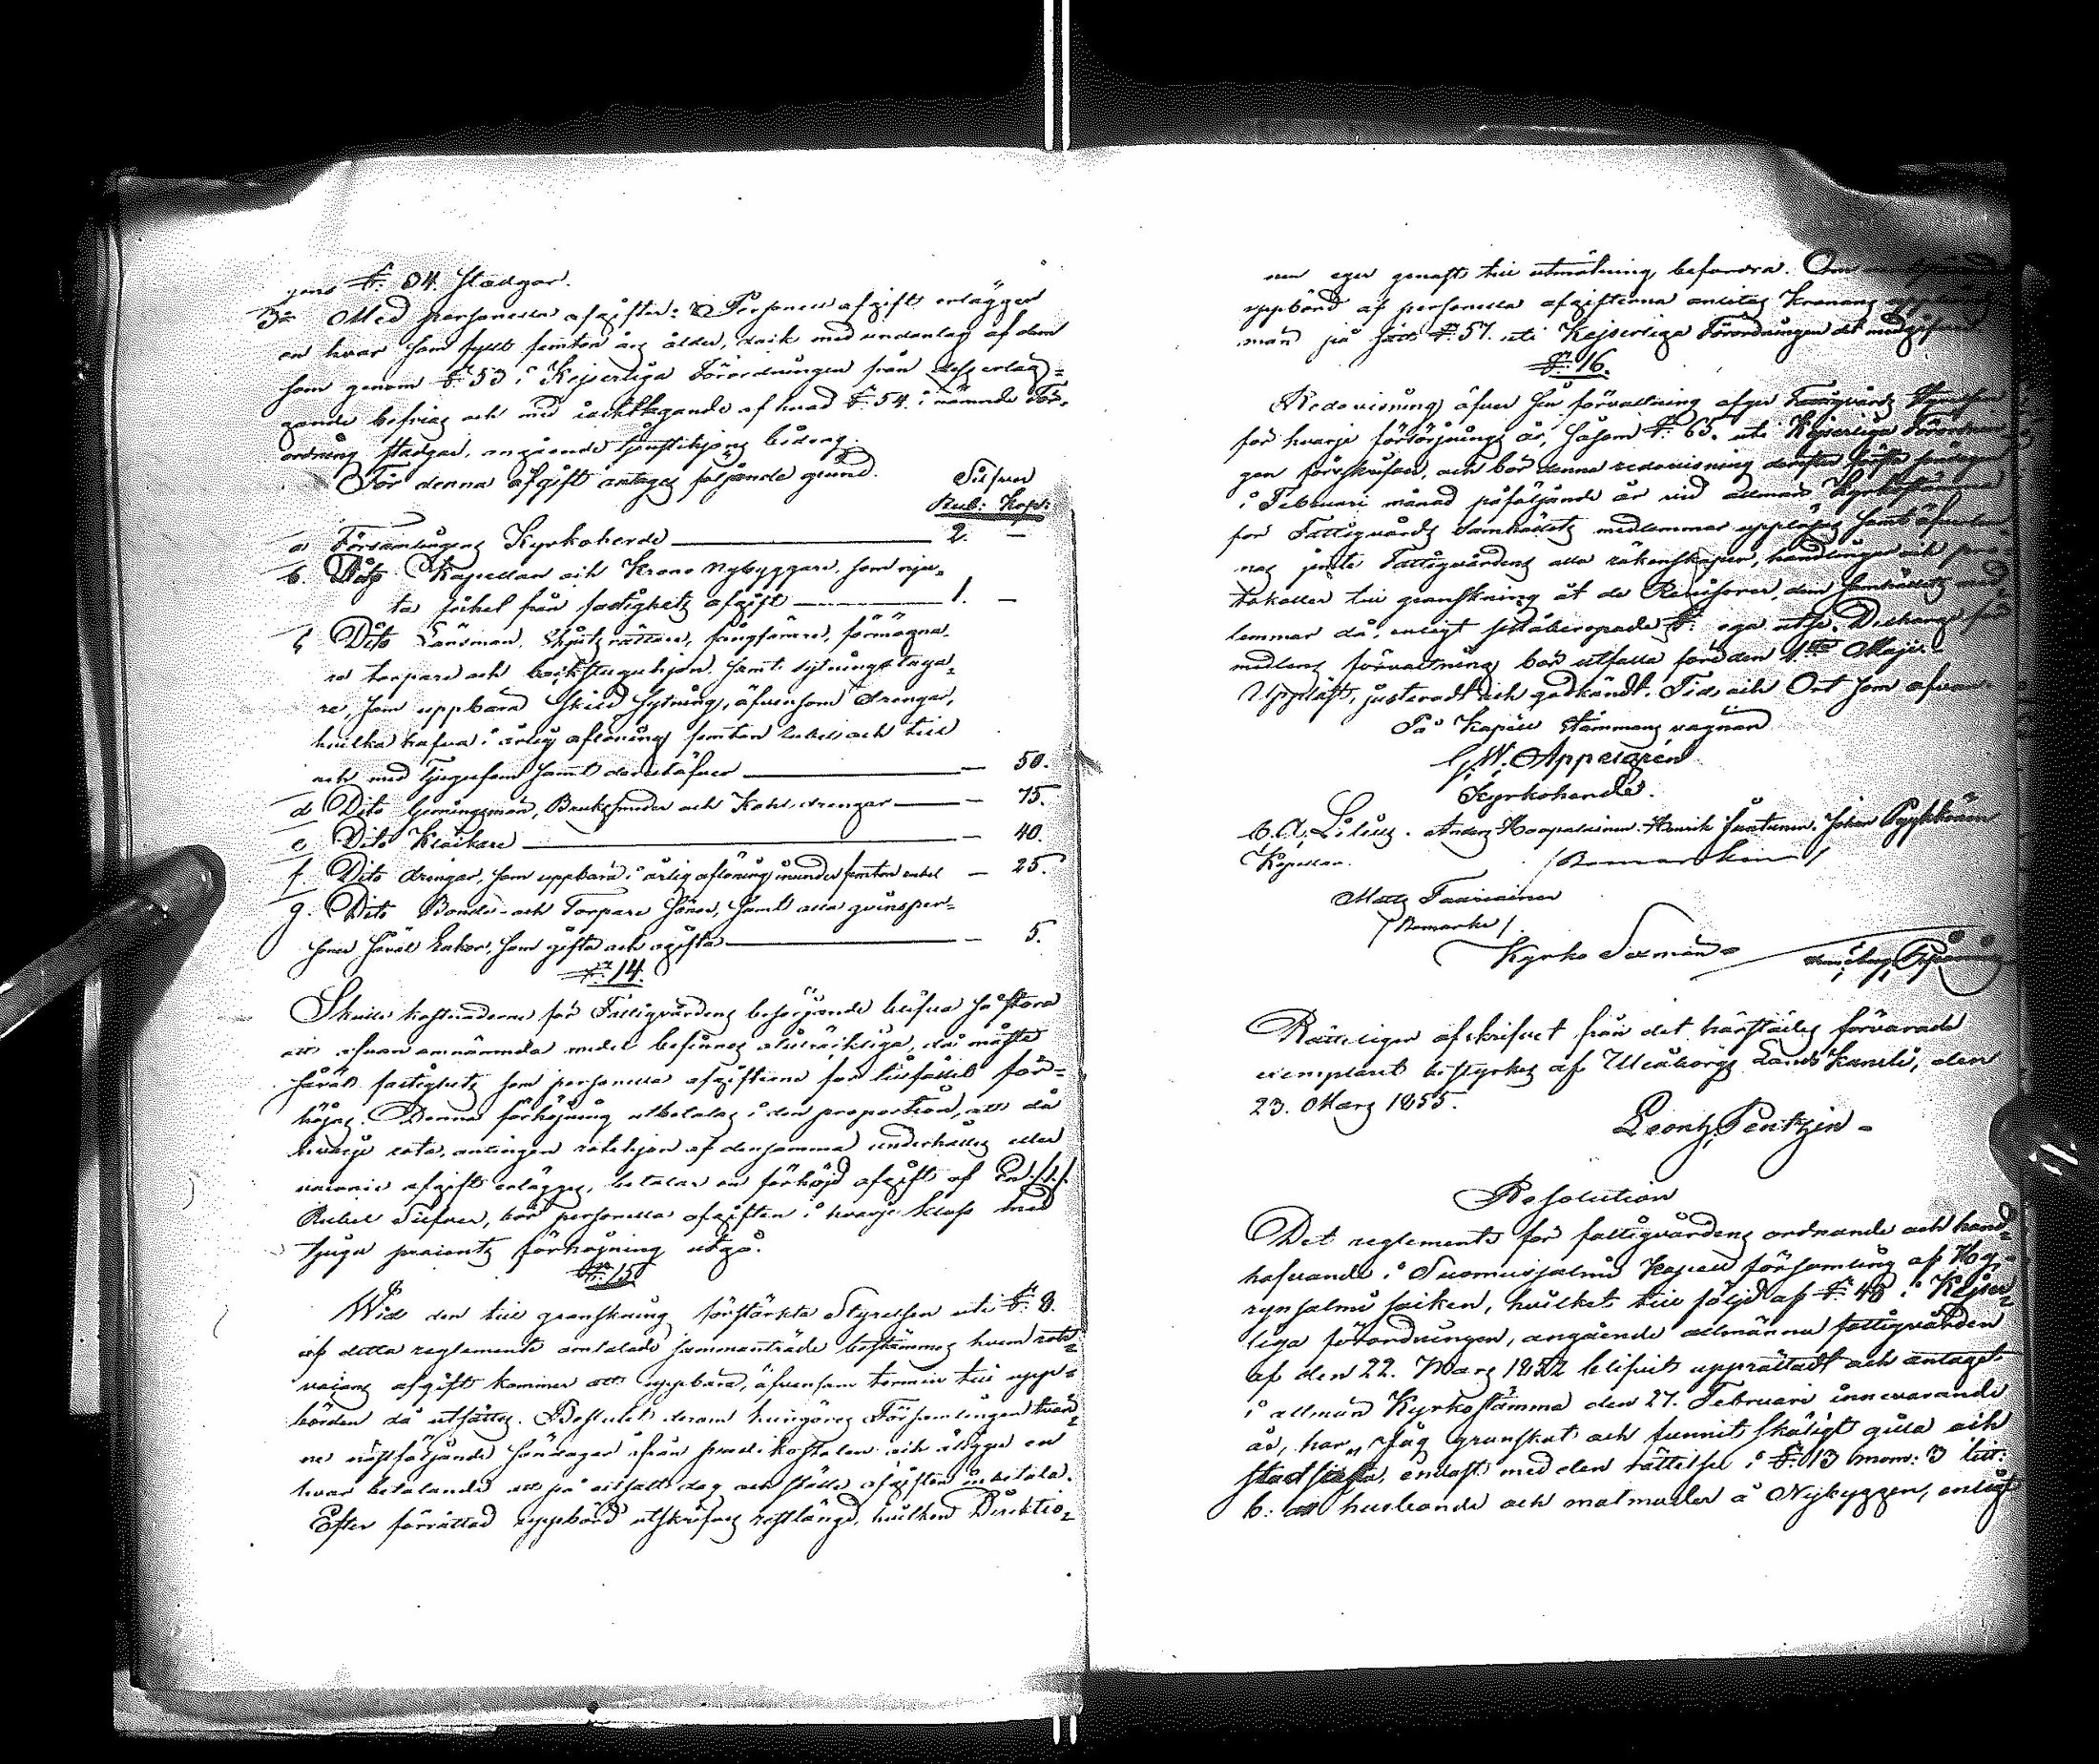 gens §. 54. stadgar.
3o Med personella afgifter: Personell afgift erlägger
en hvar som fyllt femton års ålder, dock med undantag af dem
som genom §. 53 i Kejserliga Förordningen från dess erläg=
gande befrias och med iakttagande af hvad §. 54. i nämnde För=
ordning stadgar, angående tjenstehjons beteng.
För denna afgift antages följande grund.
Silfver
Rub: Kop:
a Församlingens Kyrkoherde — 2. —
b. Dito Kapellan och Krono Nybyggare, som nju=
ta frihet från fastighets afgift — 1. —
c Dito Länsman, Skjutsrättare, fångförare, förmögna=
re torpare och backstuguhjon samt sytningstaga=
re, som uppbära skild sytning, äfvensom drengar,
hvilka hafva i årlig aflöning femton rubel och till
och med tjugufem samt derutöfver — 50.
d Dito Gerningsmän, Bruksmeder och Kohl drengar — 75.
e Dito Klåckare — 40.
f. Dito drengar, som uppbära i årlig aflöning inunder femton rubel — 25.
g. Dito Bonde- och Torpare Söner, samt alla qvinsper=
soner såväl Enkor, som gifta och ogifta — 5.
§. 14.
Skulle kostnaderne för Fattigvårdens besörjande blifva så stora
att ofvan omnämnda medel befinnes otillräckliga, då måste
såväl fastighets som personella afgifterne för tillfället för=
höjas. Denna förhöjning utbetalas i den proportion, att då
hvarje rote, antingen rotehjon af densamma underhålles eller
vacance afgift erlägges, betalar en förhöjd afgift af En /1/
Rubel Silfver, bör personella afgiften i hvarje klass med
tjugu procents förhöjning utgå.
§. 15
Wid den till granskning förstärkta Styrelsen uti §. 8.
af detta reglemente omtalade sammanträde bestämmes hvem rote
vacans afgift kommer att uppbära, äfvensom termin till upp=
börden då utsättes. Beslutet derom kungöres Församlingen tvän=
ne nästföljande söndagar ifrån predikostolen och ålägges en
hvar betalande att på utsatt dag och ställe afgiften inbetala.
Efter förrättad uppbörd utskrifves restlängd, hvilken Direktio=
nen eger genast till utmätning befordra. Om
uppbörd af personella afgifterna anlitas Kronans
man på sätt §. 57. uti Kejserliga Förordningen det medgifver.
§. 16.
Redovisning öfver sin förvaltning afger Fattigvårds Styrelsen
för hvarje försörjnings år, såsom §. 65. uti Kejserliga Förordnin=
gen föreskrifver, och bör denna redovisning derefter första söndagen
i Februari månad påföljande år vid allmän Kyrkostämma
för Fattigvårds Samhällets medlemmar uppläsas samt öfverlem=
nas jemte Fattigvårdens alla räkenskaper, handlingar och pro=
tokoller till granskning åt de Revisorer, dem Samhällets med=
lemmar då, enligt siståberopade §: ega utse. Decharge för
medlens förvaltning bör utfalla före den 1sta Maji.
Uppläst, justeradt och godkändt. Tid och Ort som ofvan.
På Kapell Stämmans vägnar
G. W. Appelgrén
Kyrkoherde.
C. A. Lilius. Anders Haapalainen. Henrik Juntunen. Johan Pyykkönen
Kapellan. /Bomärken/
Matts Tauriainen
/Bomärke/.
Kyrko Sexmän=
Rätteligen afskrifvet från det härstädes förvarade
exemplaret bestyrkes af Uleåborgs Lands Kansli, den
23. Mars 1855.
Leont. Pentzin.
Resolution
Det reglemente för fattigvårdens ordnande och hand=
hafvande i Suomusjalmi Kapell församling af Hy=
rynsalmi Socken, hvilket till följd af §. 48 i Kejser=
liga förordningen, angående allmänna fattigvården
af den 22. Mars 1852 blifvit upprättadt och antaget
i allmän Kyrkostämma den 27. Februari innevarande
år, har Jag granskat och funnit skäligt gilla och
stadfästa, endast med den rättelse i §. 13 mom: 3 litt:
b. att husbonde och matmoder å Nybyggen, enligt